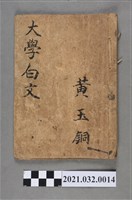 大學白文
黃玉銅
2021.032.0014